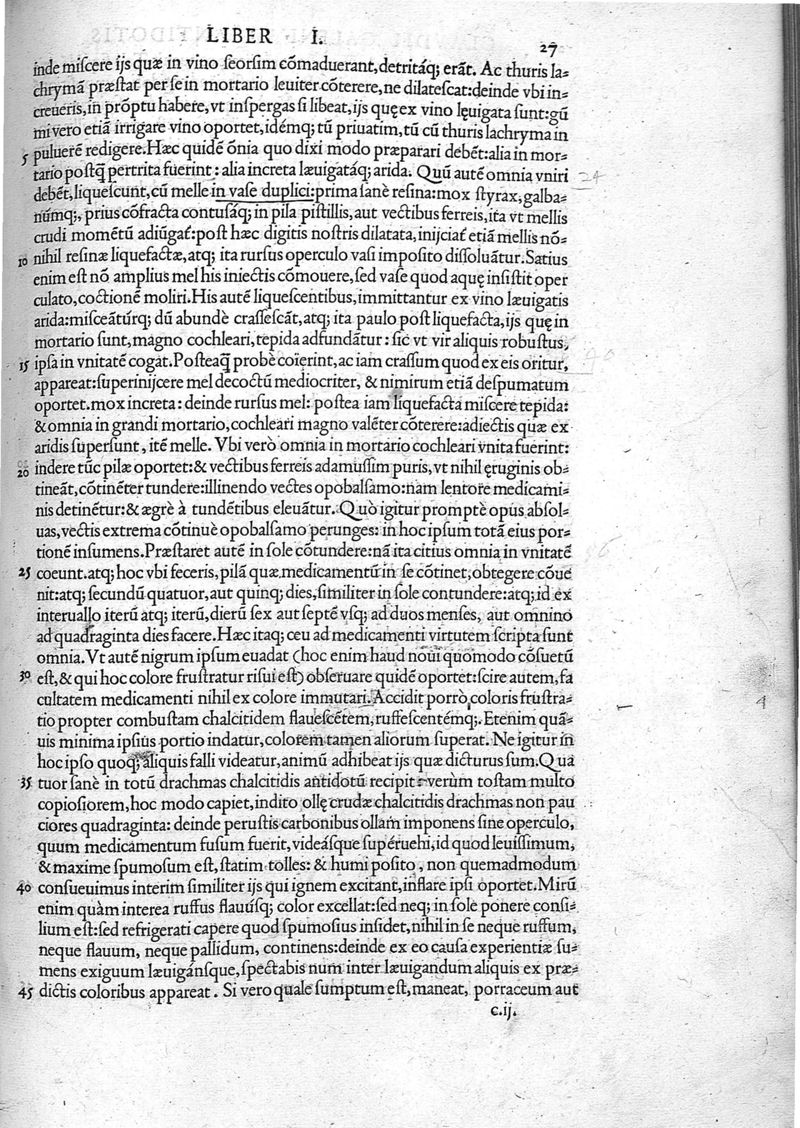 LIBER I. 27
inde miſcere ijs quæ in vino ſeorſim cõmaduerant, detritáq; erãt. Ac thuris la-
chrymã præſtat per ſe in mortario leuiter cõterere, ne dilateſcat: deinde vbi in-
creueris, in prõptu habere, vt inſpergas ſi libeat, ijs quę ex vino lęuigata ſunt: gũ
mi vero etiã irrigare vino oportet, idémq; tũ priuatim, tũ cũ thuris lachryma in
5 puluerẽ redigere. Hæc quidẽ õnia quo dixi modo præparari debẽt: alia in mor-
tario poſtq̃ pertrita fuerint: alia increta læuigatáq; arida. Quũ autẽ omnia vniri
debẽt, liqueſcunt, cũ melle in vaſe duplici: prima ſanè reſina: mox ſtyrax, galba-
númq;, prius cõfracta contuſáq; in pila piſtillis, aut vectibus ferreis, ita vt mellis
crudi momẽtũ adiũgat̃: poſt hæc digitis noſtris dilatata, inijciat̃ etiã mellis nõ-
10 nihil reſinæ liquefactæ, atq; ita rurſus operculo vaſi impoſito diſſoluãtur. Satius
enim eſt nõ amplius mel his iniectis cõmouere, ſed vaſe quod aquę inſiſtit oper
culato, coctionẽ moliri. His autẽ liqueſcentibus, immittantur ex vino læuigatis
arida: miſceãtúrq; dũ abundè craſſeſcãt, atq; ita paulo poſt liquefacta, ijs quę in
mortario ſunt, magno cochleari, tepida adfundãtur: ſic vt vir aliquis robuſtus,
15 ipſa in vnitatẽ cogat. Poſteaq̃ probè coïerint, ac iam craſſum quod ex eis oritur,
appareat: ſuperinijcere mel decoctũ mediocriter, & nimirum etiã deſpumatum
oportet. mox increta: deinde rurſus mel: poſtea iam liquefacta miſcere tepida:
& omnia in grandi mortario, cochleari magno valẽter cõterere: adiectis quæ ex
aridis ſuperſunt, itẽ melle. Vbi verò omnia in mortario cochleari vnita fuerint:
20 indere tũc pilæ oportet: & vectibus ferreis adamuſſim puris, vt nihil ęruginis ob-
tineãt, cõtinẽter tundere: illinendo vectes opobalſamo: nam lentore medicami-
nis detinẽtur: & ægrè à tundẽtibus eleuãtur. Quò igitur promptè opus abſol-
uas, vectis extrema cõtinuè opobalſamo perunges: in hoc ipſum totã eius por-
tionẽ inſumens. Præſtaret autẽ in ſole cõtundere: nã ita citius omnia in vnitatẽ
25 coeunt. atq; hoc vbi feceris, pilã quæ medicamentũ in ſe cõtinet, obtegere cõue
nit: atq; ſecundũ quatuor, aut quinq; dies, ſimiliter in ſole contundere: atq; id ex
interuallo iterũ atq; iterũ, dierũ ſex aut ſeptẽ vſq; ad duos menſes, aut omnino
ad quadraginta dies facere. Hæc itaq; ceu ad medicamenti virtutem ſcripta ſunt
omnia. Vt autẽ nigrum ipſum euadat (hoc enim haud noui quomodo cõſuetũ
30 eſt, & qui hoc colore fruſtratur riſui eſt) obſeruare quidẽ oportet: ſcire autem, fa
cultatem medicamenti nihil ex colore immutari. Accidit porrò, coloris fruſtra-
tio propter combuſtam chalcitidem flaueſcẽtem, ruffeſcentémq;. Etenim quã-
uis minima ipſius portio indatur, colorem tamen aliorum ſuperat. Ne igitur in
hoc ipſo quoq; aliquis falli videatur, animũ adhibeat ijs quæ dicturus ſum. Qua
35 tuor ſanè in totũ drachmas chalcitidis antidotũ recipit: verùm toſtam multo
copioſiorem, hoc modo capiet, indito ollę crudæ chalcitidis drachmas non pau
ciores quadraginta: deinde peruſtis carbonibus ollam imponens ſine operculo,
quum medicamentum fuſum fuerit, videáſque ſupéruehi, id quod leuiſſimum,
& maxime ſpumoſum eſt, ſtatim tolles: & humi poſito, non quemadmodum
40 conſueuimus interim ſimiliter ijs qui ignem excitant, inflare ipſi oportet. Mirũ
enim quàm interea ruffus flauúſq; color excellat: ſed neq; in ſole ponere conſi-
lium eſt: ſed refrigerati capere quod ſpumoſius inſidet, nihil in ſe neque ruffum,
neque flauum, neque pallidum, continens: deinde ex eo cauſa experientiæ ſu-
mens exiguum læuigánſque, ſpectabis num inter læuigandum aliquis ex præ-
45 dictis coloribus appareat. Si vero quale ſumptum eſt, maneat, porraceum aut
c.ij.